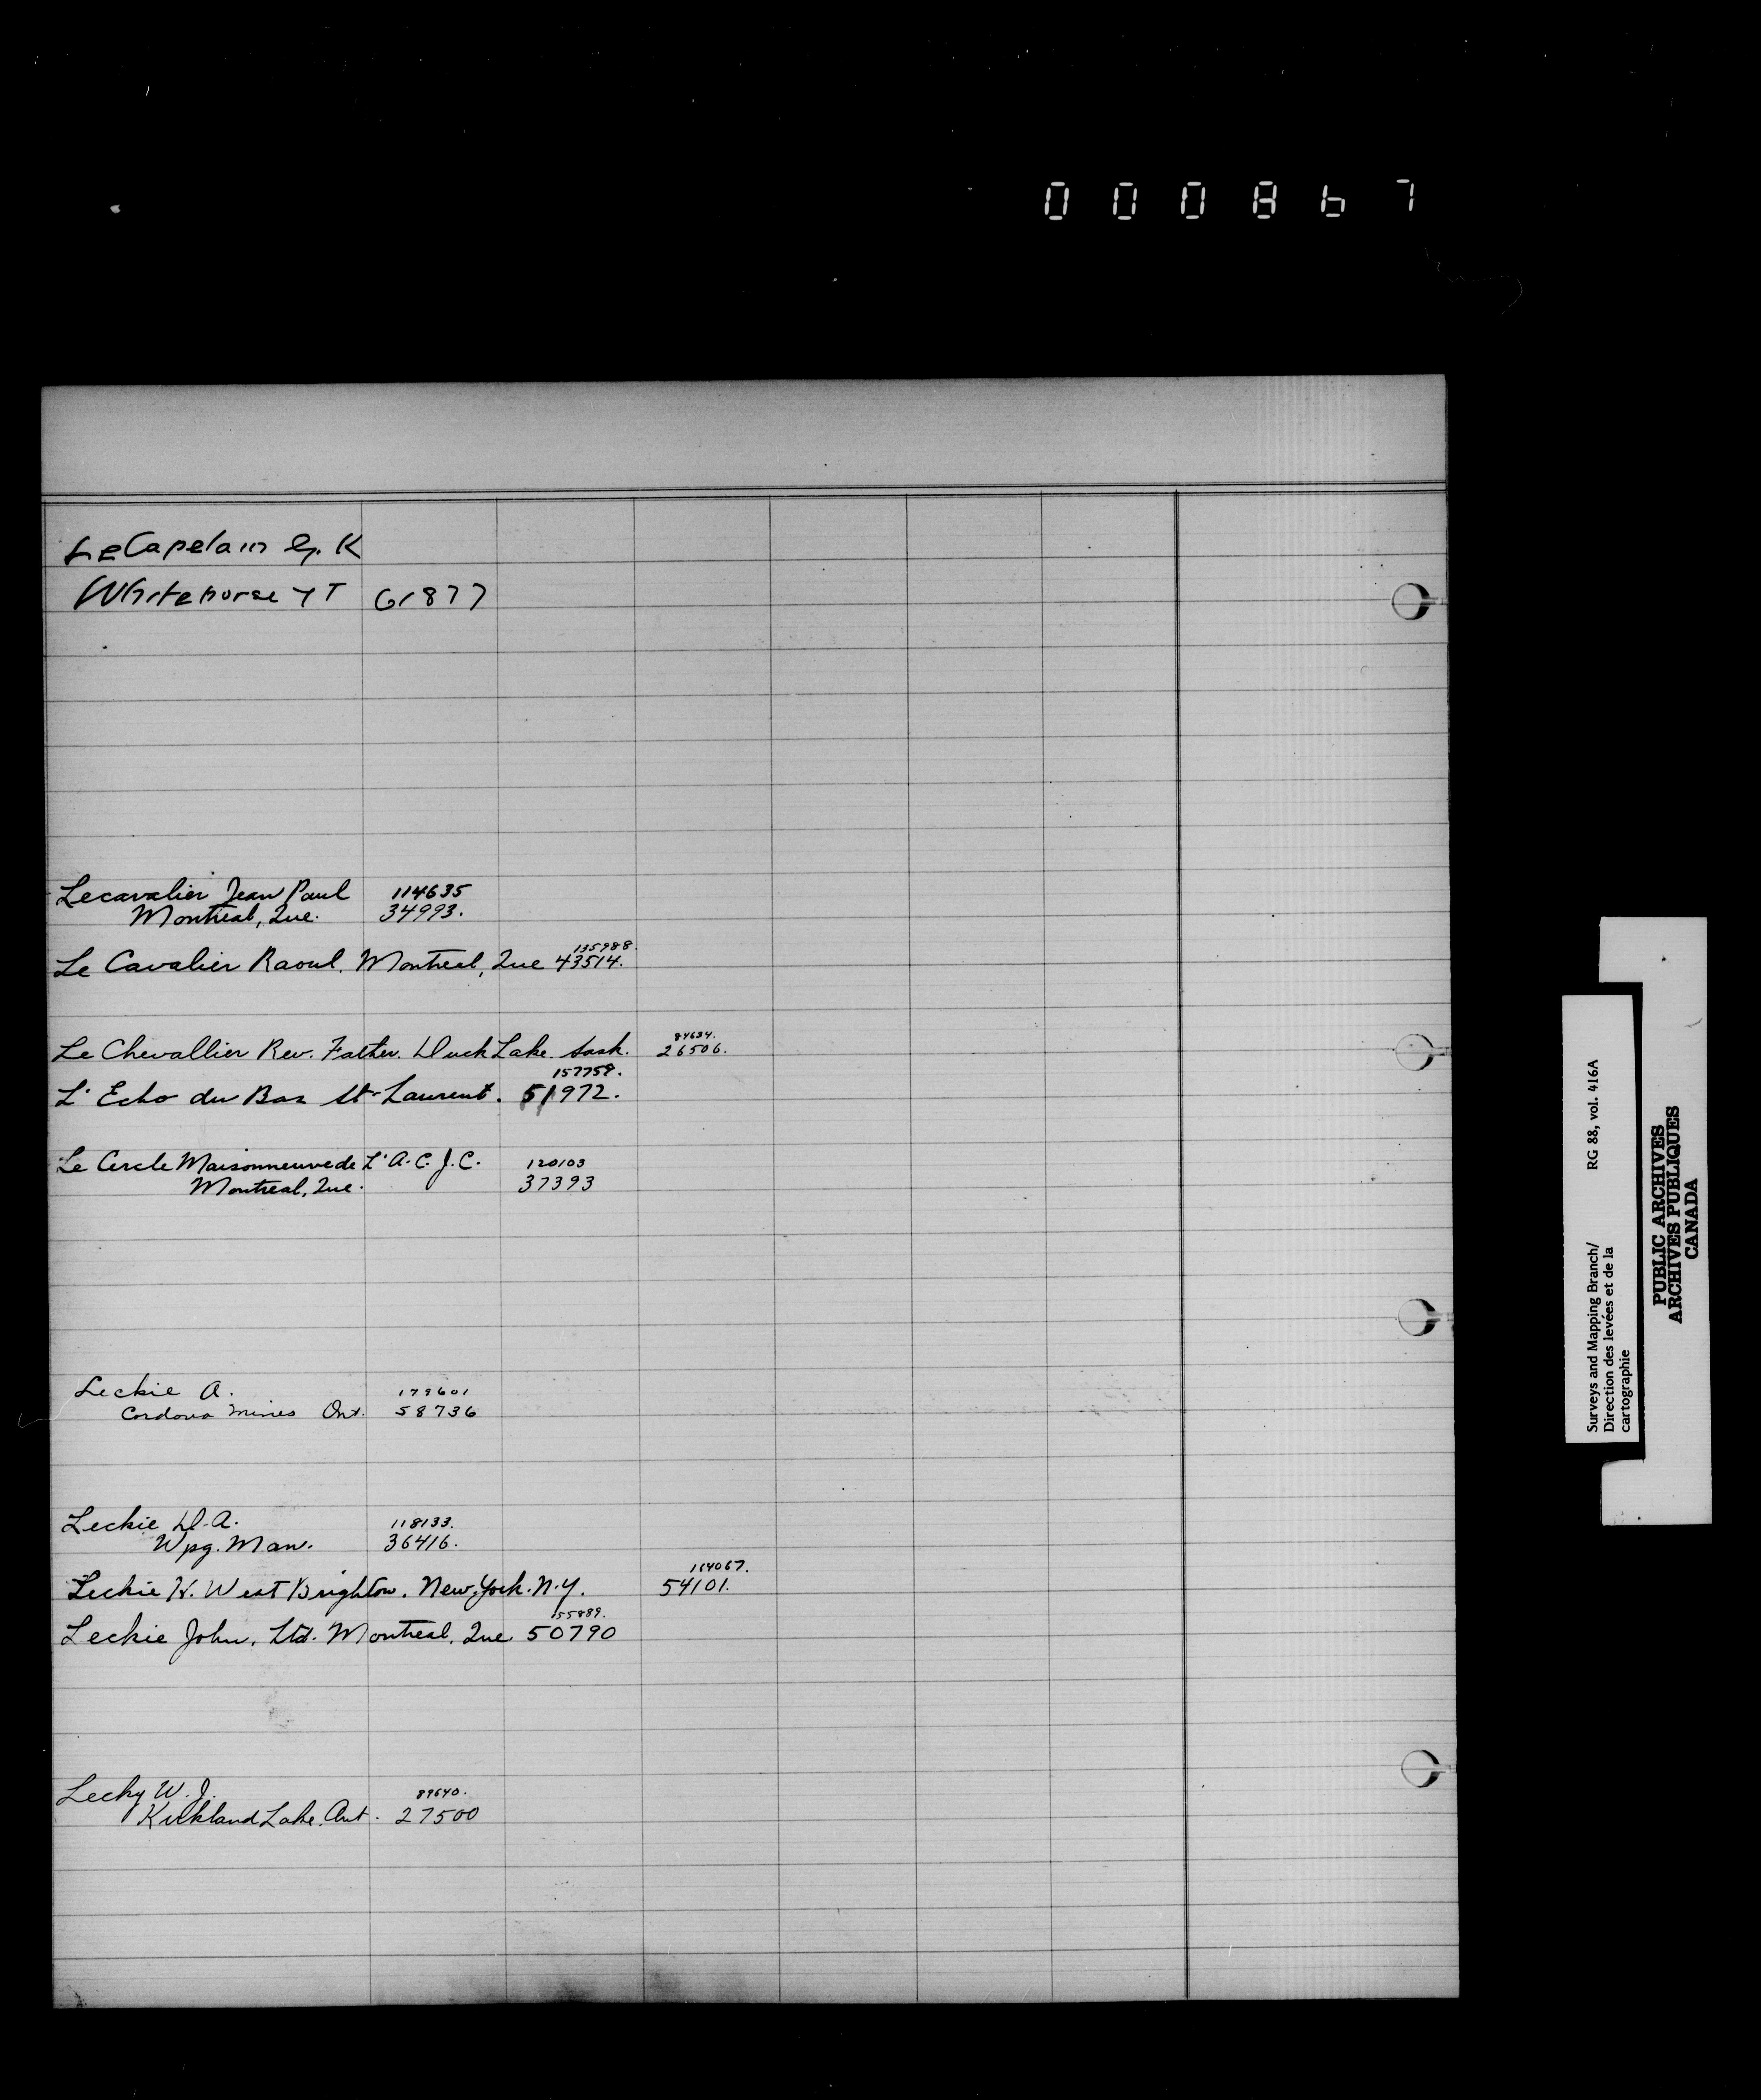 000867
LeCapelain G. K
Whitehorse Y T 61877
Lecavalier Jean Paul 114635
Montreal, Que. 34993.
135988.
Le Cavalier Raoul. Montreal, Que 43514.
84634.
Le Chevallier Rev. Father. Duck Lake. Sask. 26506.
157758.
L'Echo du Bas St-Laurent. 51972.
Le Cercle Maisonneuve de L'A.C.J.C. 120103
Montreal, Que. 37393
Leckie A. 179601
Cordova Mines Ont. 58736
Leckie D.A. 118133.
Wpg. Man. 36416.
164067.
Leckie H. West Brighton. New York. N.Y. 54101.
155889.
Leckie John, Ltd. Montreal, Que. 50790
Lecky W. J. 89640.
Kirkland Lake. Ont. 27500
Surveys and Mapping Branch/ RG 88, vol. 416A
Direction des levées et de la
cartographie
PUBLIC ARCHIVES
ARCHIVES PUBLIQUES
CANADA